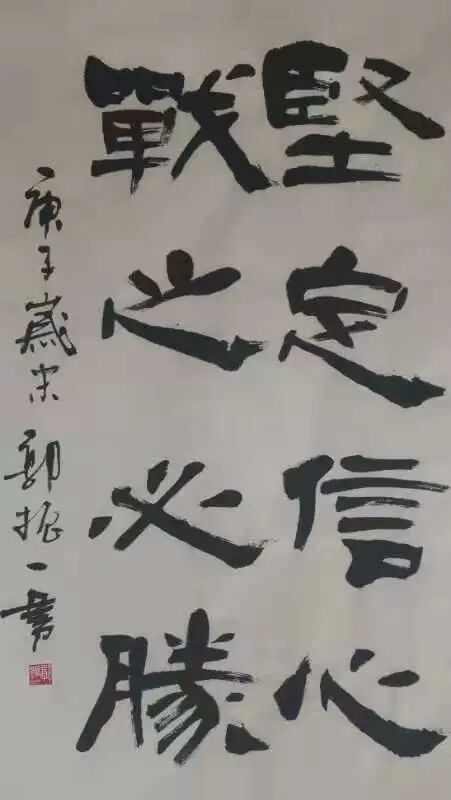 堅定信心
戰之必勝
庚子歲末 郭振一書